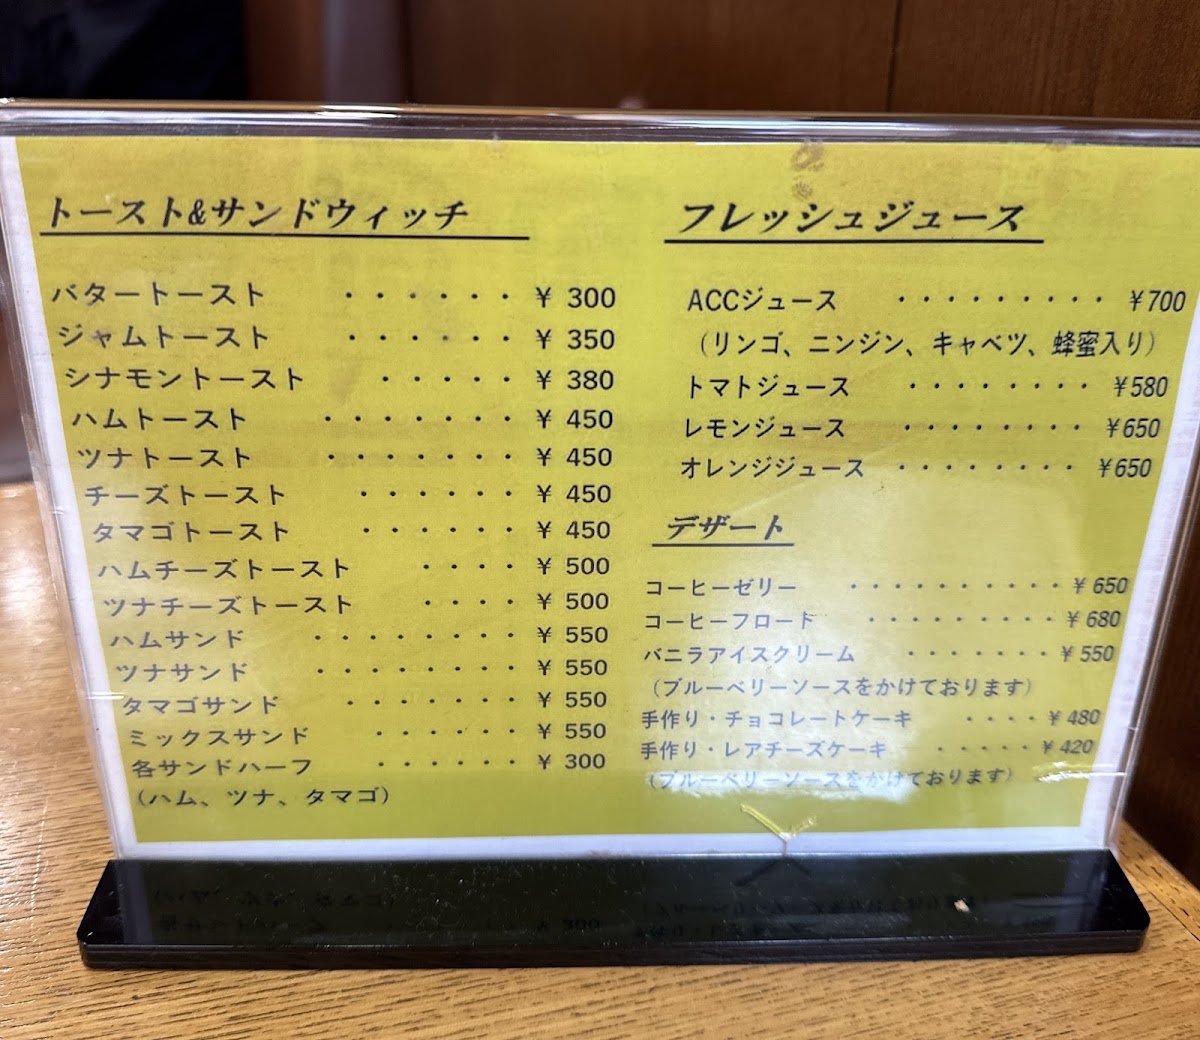 トースト&サンドウィッチ
バタートースト ・・・・・・ ¥ 300
ジャムトースト ・・・・・・ ¥ 350
シナモントースト ・・・・・ ¥ 380
ハムトースト ・・・・・・・ ¥ 450
ツナトースト ・・・・・・・ ¥ 450
チーズトースト ・・・・・・ ¥ 450
タマゴトースト ・・・・・・ ¥ 450
ハムチーズトースト ・・・・ ¥ 500
ツナチーズトースト ・・・・ ¥ 500
ハムサンド ・・・・・・・・ ¥ 550
ツナサンド ・・・・・・・・ ¥ 550
タマゴサンド ・・・・・・・ ¥ 550
ミックスサンド ・・・・・・ ¥ 550
各サンドハーフ ・・・・・・ ¥ 300
(ハム、ツナ、タマゴ)
フレッシュジュース
ACCジュース ・・・・・・・・・ ¥700
(リンゴ、ニンジン、キャベツ、蜂蜜入り)
トマトジュース ・・・・・・・・ ¥580
レモンジュース ・・・・・・・・ ¥650
オレンジジュース ・・・・・・・・ ¥650
デザート
コーヒーゼリー ・・・・・・・・・・ ¥650
コーヒーフロード ・・・・・・・・・ ¥680
バニラアイスクリーム ・・・・・・・ ¥550
(ブルーベリーソースをかけております)
手作り・チョコレートケーキ ・・・・ ¥480
手作り・レアチーズケーキ ・・・・・ ¥420
(ブルーベリーソースをかけております)